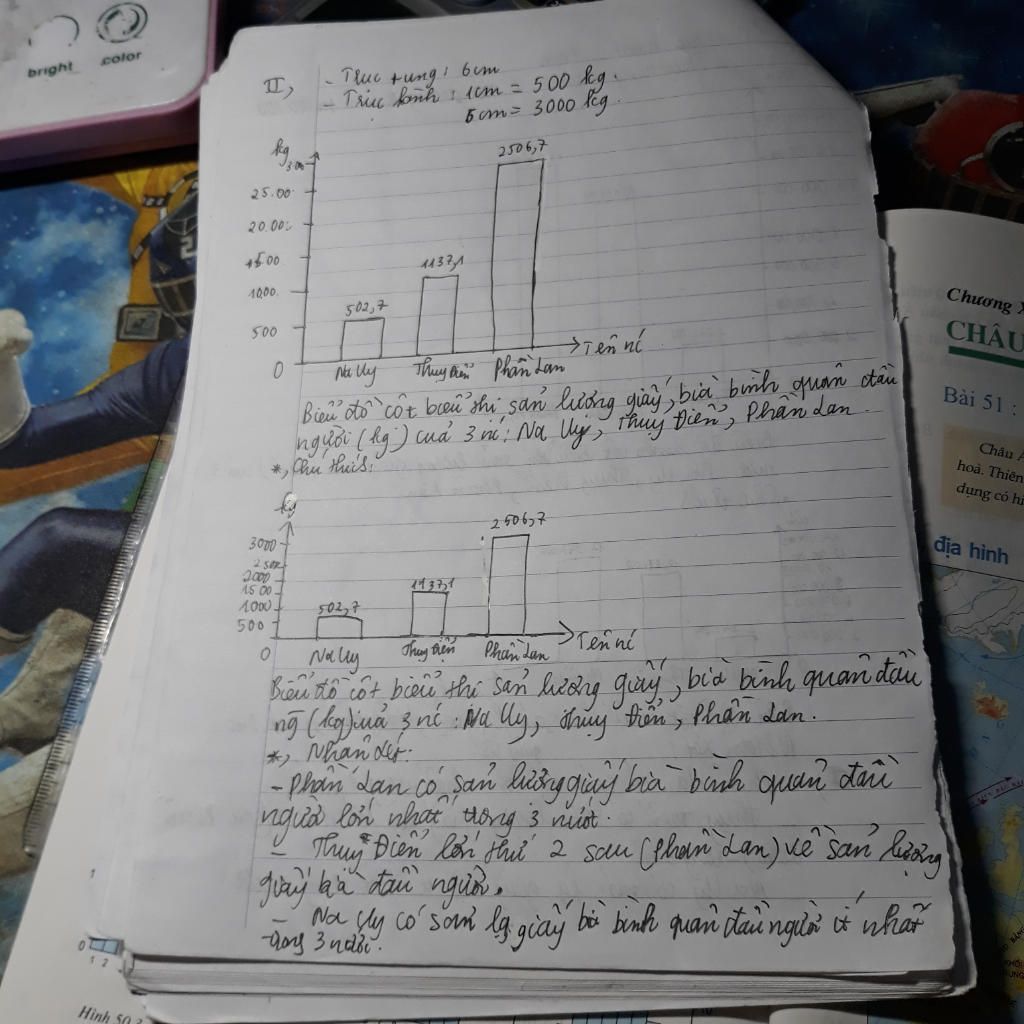 bright color
II, - Trục tung: 6cm
- Trục hành: 1cm = 500 kg.
6cm = 3000 kg.
kg
300
25.00
20.00
1500
1000
500
0
502,7
1137,1
2506,7
Na Uy Thuỵ Điển Phần Lan
Tên nc
Biểu đồ cột biểu thị sản lượng giấy, bìa bình quân đầu
người (kg) của 3 nc: Na Uy, Thuỵ Điển, Phần Lan.
*, Chú thích:
kg
3000
2500
2000
1500
1000
500
0
502,7
1137,1
2506,7
Na Uy Thuỵ Điển Phần Lan
Tên nc
Biểu đồ cột biểu thị sản lượng giấy, bìa bình quân đầu
ng (kg) của 3 nc: Na Uy, Thuỵ Điển, Phần Lan.
*, Nhận xét:
- Phần Lan có sản lượng giấy bìa bình quân đầu
người lớn nhất trong 3 nước.
- Thuỵ Điển lớn thứ 2 sau (Phần Lan) về sản lượng
giấy bìa đầu người.
- Na Uy có sản lg giấy bìa bình quân đầu người ít nhất
trong 3 nước.
Chương X
CHÂU
Bài 51 :
Châu
hoả. Thiên
dụng có hi
địa hình
0
1 2
Hình 50.2